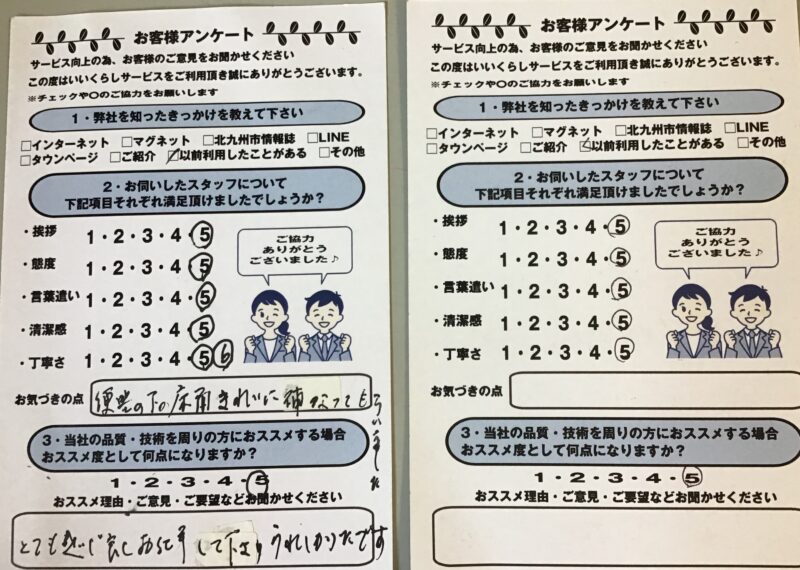 お客様アンケート
サービス向上の為、お客様のご意見をお聞かせください
この度はいいくらしサービスをご利用頂き誠にありがとうございます。
※チェックや○のご協力をお願いします
1・弊社を知ったきっかけを教えて下さい
□インターネット □マグネット □北九州市情報誌 □LINE
□タウンページ □ご紹介 ☑以前利用したことがある □その他
2・お伺いしたスタッフについて
下記項目それぞれ満足頂けましたでしょうか？
・挨拶 1・2・3・4・5
・態度 1・2・3・4・5
・言葉遣い 1・2・3・4・5
・清潔感 1・2・3・4・5
・丁寧さ 1・2・3・4・5 6
ご協力
ありがとう
ございました♪
お気づきの点 の下の床面きれいに補
3・当社の品質・技術を周りの方におススメする場合
おススメ度として何点になりますか？
1・2・3・4・5
おススメ理由・ご意見・ご要望などお聞かせください
とても感じ良く して下さり うれしかったです
お客様アンケート
サービス向上の為、お客様のご意見をお聞かせください
この度はいいくらしサービスをご利用頂き誠にありがとうございます。
※チェックや○のご協力をお願いします
1・弊社を知ったきっかけを教えて下さい
□インターネット □マグネット □北九州市情報誌 □LINE
□タウンページ □ご紹介 ☑以前利用したことがある □その他
2・お伺いしたスタッフについて
下記項目それぞれ満足頂けましたでしょうか？
・挨拶 1・2・3・4・5
・態度 1・2・3・4・5
・言葉遣い 1・2・3・4・5
・清潔感 1・2・3・4・5
・丁寧さ 1・2・3・4・5
ご協力
ありがとう
ございました♪
お気づきの点
3・当社の品質・技術を周りの方におススメする場合
おススメ度として何点になりますか？
1・2・3・4・5
おススメ理由・ご意見・ご要望などお聞かせください